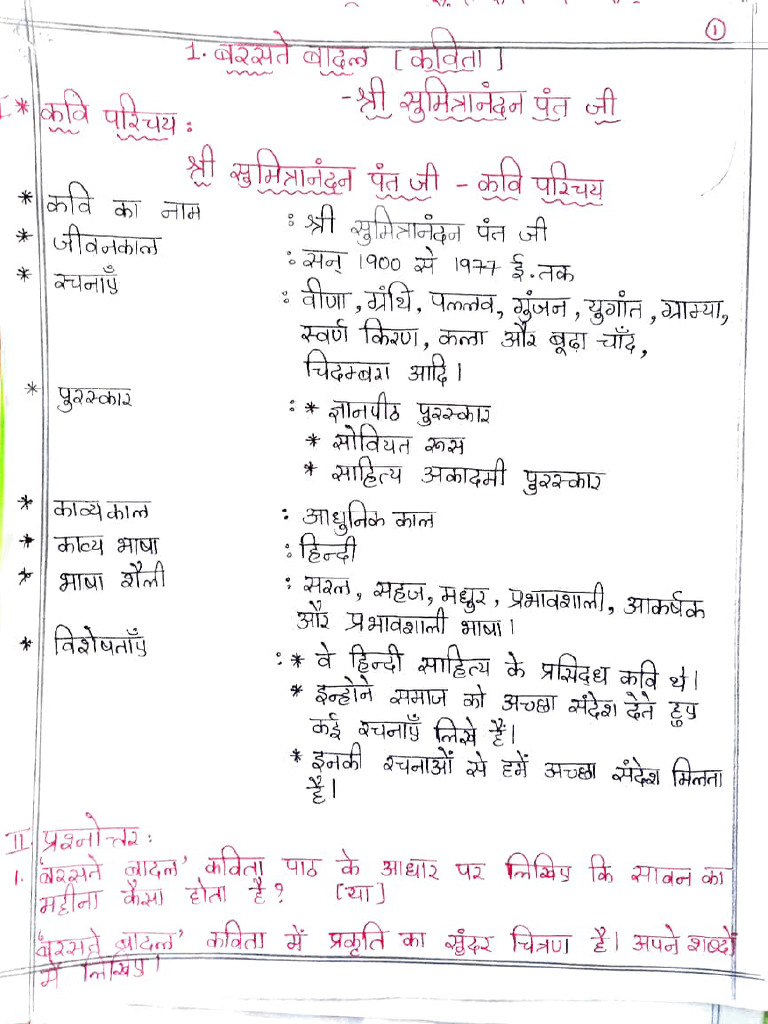 1
1. बरसते बादल [कविता]
-श्री सुमित्रानंदन पंत जी
I * कवि परिचय :
श्री सुमित्रानंदन पंत जी - कवि परिचय
* कवि का नाम : श्री सुमित्रानंदन पंत जी
* जीवनकाल : सन् 1900 से 1977 ई. तक
* रचनाएँ : वीणा, ग्रंथि, पल्लव, गुंजन, युगांत, ग्राम्या,
स्वर्ण किरण, कला और बूढ़ा चाँद,
चिदम्बरा आदि।
* पुरस्कार : * ज्ञानपीठ पुरस्कार
* सोवियत रूस
* साहित्य अकादमी पुरस्कार
* काव्यकाल : आधुनिक काल
* काव्य भाषा : हिन्दी
* भाषा शैली : सरल, सहज, मधुर, प्रभावशाली, आकर्षक
और प्रभावशाली भाषा।
* विशेषताएँ : * वे हिन्दी साहित्य के प्रसिद्ध कवि थे।
* इन्होने समाज को अच्छा संदेश देते हुए
कई रचनाएँ लिखे हैं।
* इनकी रचनाओं से हमें अच्छा संदेश मिलता
है।
II. प्रश्नोत्तर :
1. 'बरसते बादल' कविता पाठ के आधार पर लिखिए कि सावन का
महीना कैसा होता है? [या]
'बरसते बादल' कविता में प्रकृति का सुंदर चित्रण है। अपने शब्दों
में लिखिए।